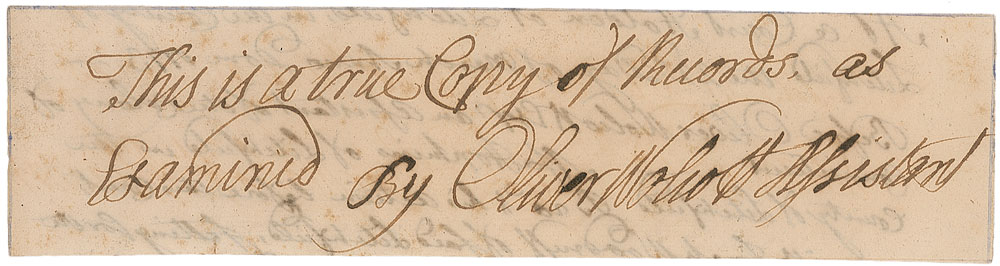 This is a true Copy of Records, as
Examined By Oliver Wolcott Assistant